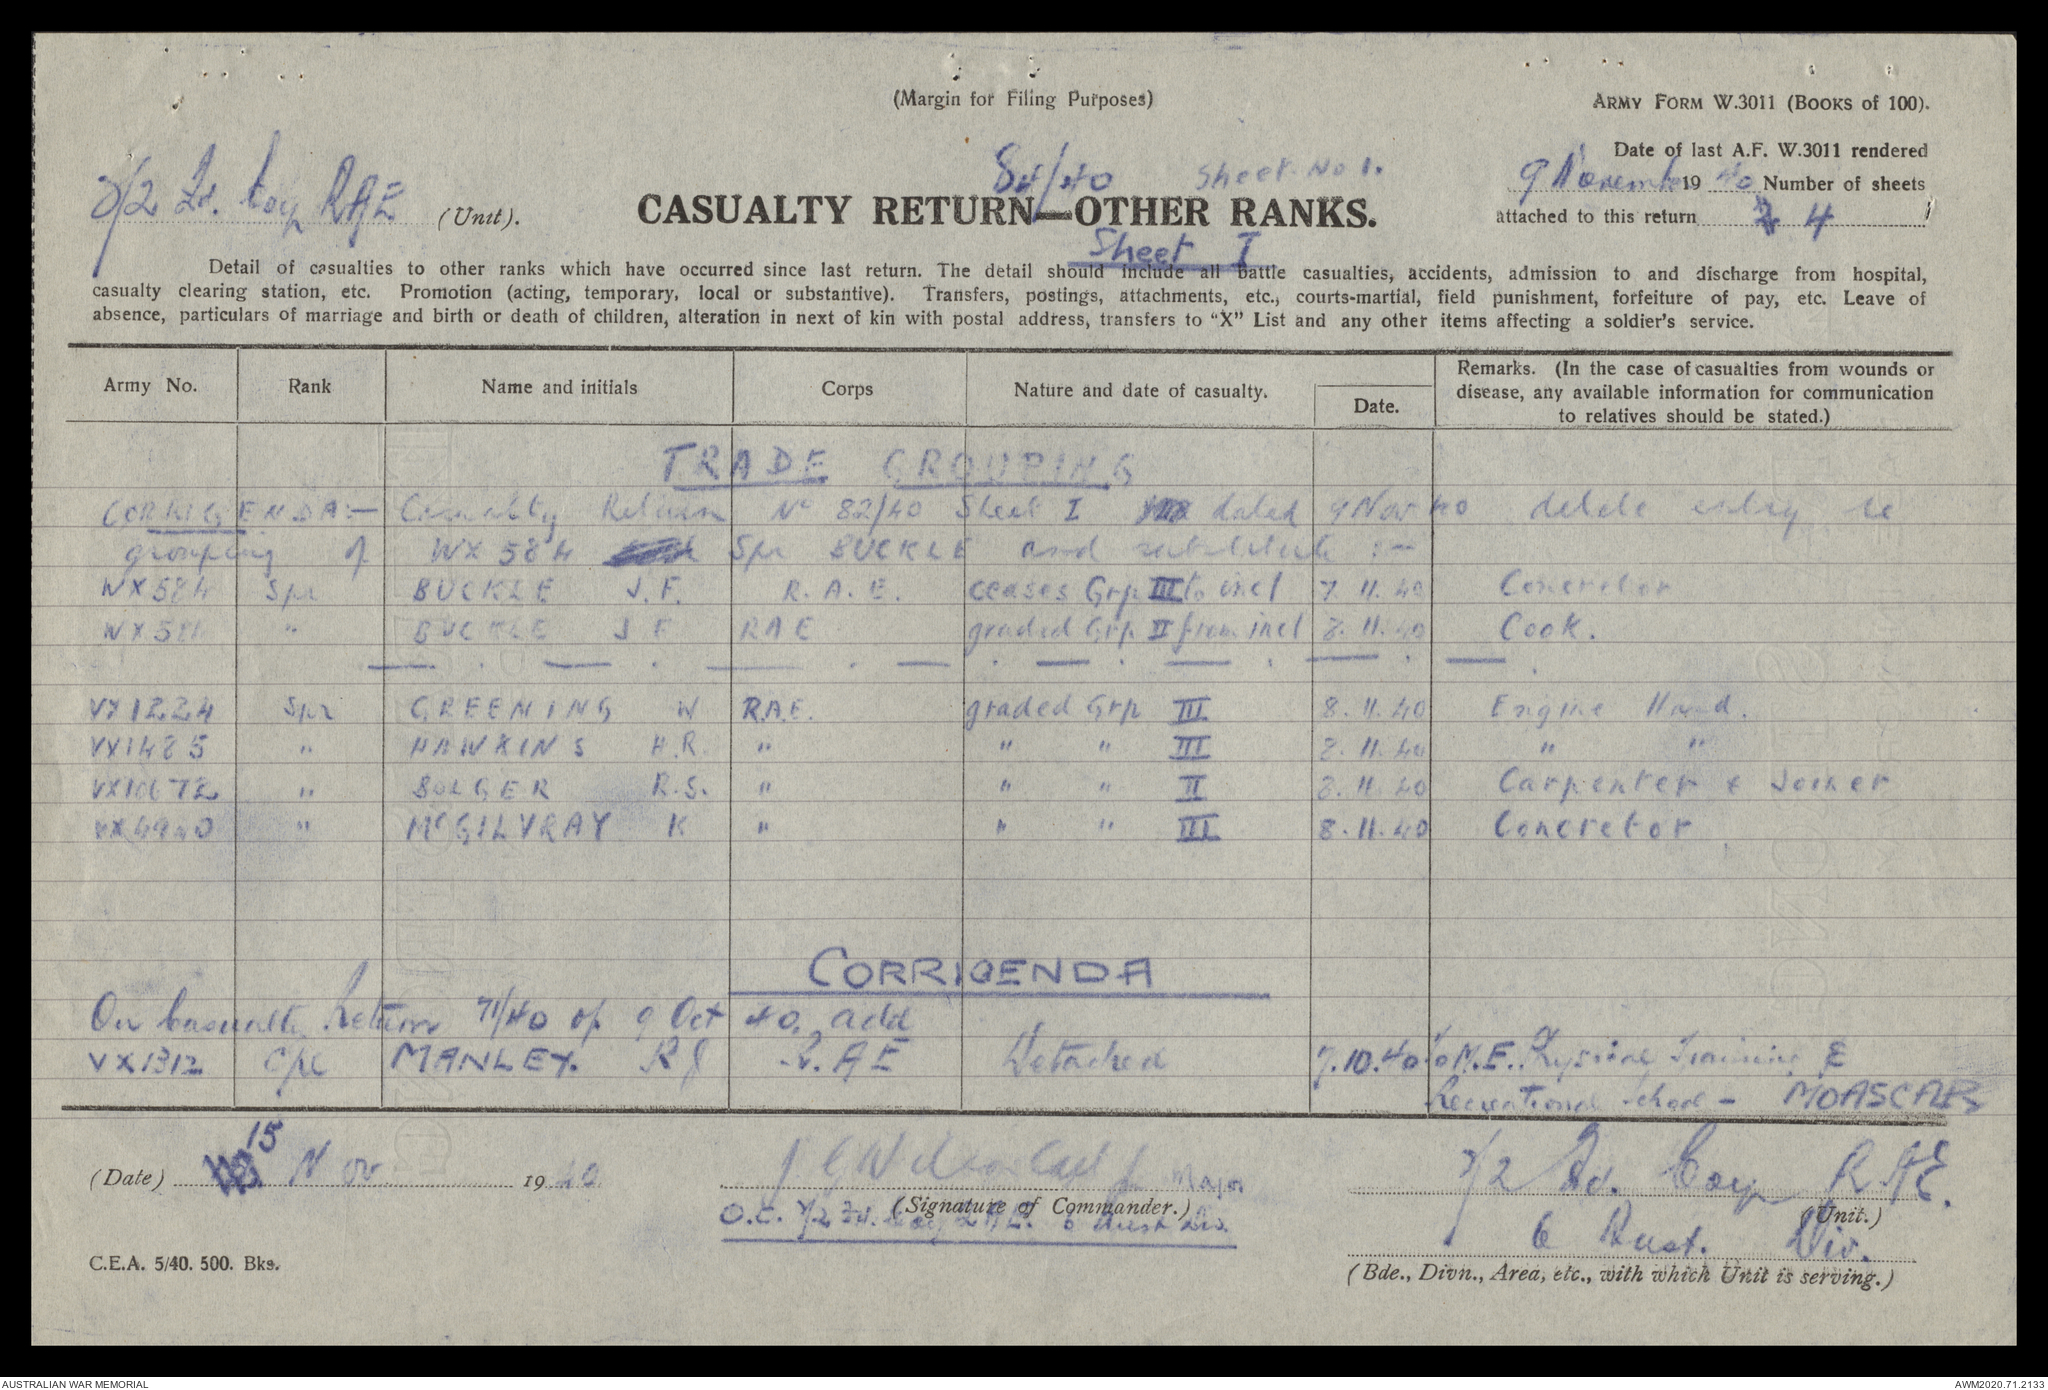 (Margin for Filing Purposes)
ARMY FORM W.3011 (BOOKS of 100).
Date of last A.F. W.3011 rendered
9 November 1940 Number of sheets
attached to this return 4
2/2 Fd. Coy RAE (Unit).
84/40 Sheet No 1.
CASUALTY RETURN—OTHER RANKS.
Sheet I
Detail of casualties to other ranks which have occurred since last return. The detail should include all battle casualties, accidents, admission to and discharge from hospital,
casualty clearing station, etc. Promotion (acting, temporary, local or substantive). Transfers, postings, attachments, etc., courts-martial, field punishment, forfeiture of pay, etc. Leave of
absence, particulars of marriage and birth or death of children, alteration in next of kin with postal address, transfers to "X" List and any other items affecting a soldier's service.
Army No. Rank Name and initials Corps Nature and date of casualty. Date. Remarks. (In the case of casualties from wounds or
disease, any available information for communication
to relatives should be stated.)
TRADE GROUPING
CORRIGENDA:— Casualty Return No 82/40 Sheet I dated 9 Nov 40 delete entry re
grouping of WX584 Spr BUCKLE and substitute :—
WX584 Spr BUCKLE J.F. R.A.E. ceases Grp III to incl 7.11.40 Concretor
WX584 " BUCKLE J F RAE graded Grp II from incl 8.11.40 Cook.
VX1224 Spr GREENING W R.A.E. graded Grp III 8.11.40 Engine Hand.
VX1485 " HAWKINS H.R. " " " III 8.11.40 " "
VX10672 " BOLGER R.S. " " " II 8.11.40 Carpenter & Joiner
VX4940 " McGILVRAY K " " " III 8.11.40 Concretor
CORRIGENDA
On Casualty Return 71/40 of 9 Oct 40, add
VX1312 Cpl MANLEY. R J R.AE Detached 7.10.40 to M.E. Physical Training &
Recreational School — MOASCAR
(Date) 15 Nov 1940
Major
(Signature of Commander.)
O.C. 2/2 Fd. Coy RAE. 6 Aust Div.
2/2 Fd. Coy RAE.
(Unit.)
6 Aust. Div.
(Bde., Divn., Area, etc., with which Unit is serving.)
C.E.A. 5/40. 500. Bks.
AUSTRALIAN WAR MEMORIAL
AWM2020.71.2133